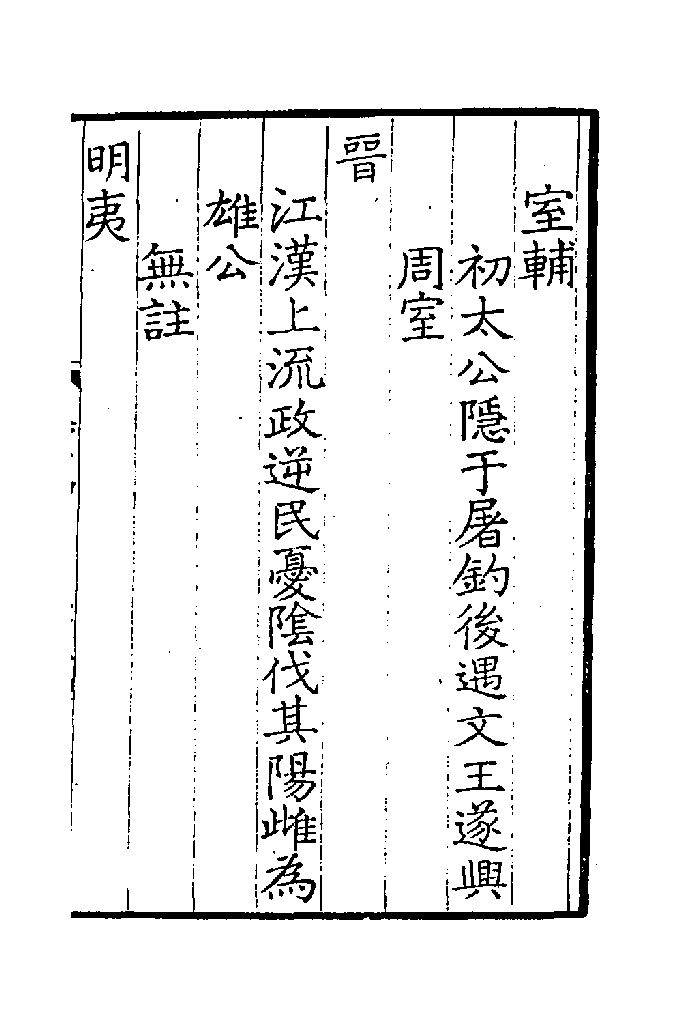 室輔
初太公隱于屠釣後遇文王遂興
周室
晉
江漢上流政逆民憂陰伐其陽雌為
雄公
無註
明夷